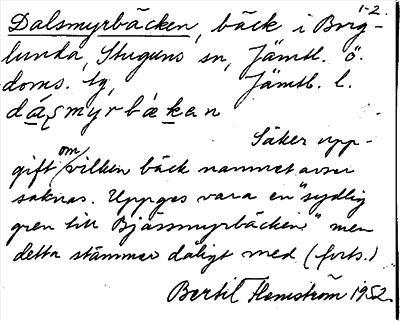 1-2.
Dalsmyrbäcken, bäck i Borg-
lunda, Stuguns sn, Jämtl. ö.
doms. tg, Jämtl. l.
dáʂmyrbäken
Säker upp-
gift om vilken bäck namnet avser
saknas. Uppges vara en "sydlig
gren till Bjässmyrbäcken" men
detta stämmer dåligt med (forts.)
Bertil Flemström 1952.